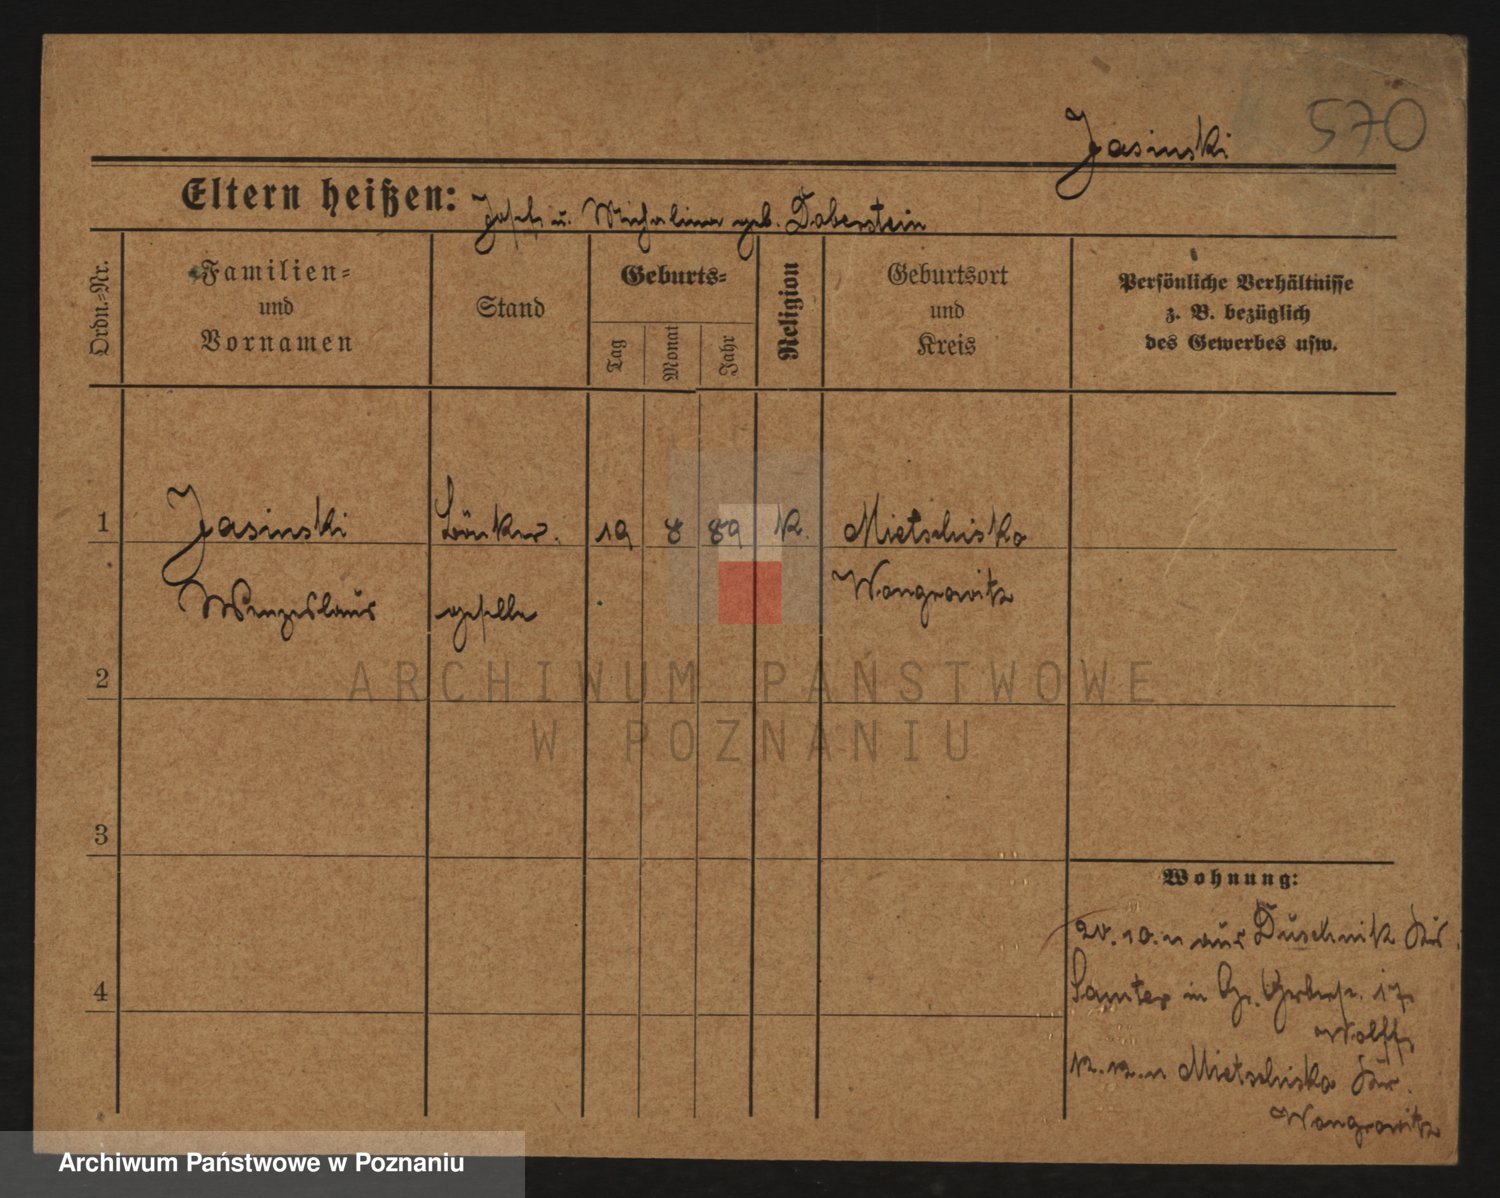 570
Jasinski
Eltern heißen: Josef u. Michalina geb. Daberstein
Ordn.-Nr.
Familien- und Vornamen
Stand
Geburts-
Tag
Monat
Jahr
Religion
Geburtsort und Kreis
Persönliche Verhältnisse
z. B. bezüglich
des Gewerbes usw.
1 Jasinski 19 8 89 K. Mietschisko
Wenzeslaus geselle Wongrowitz
ARCHIWUM PAŃSTWOWE
W POZNANIU
2
3
4
Wohnung:
20.10.11 aus Duschnik Kr.
Samter in Gr. Gerberstr. 17
Wolff
12.12.11 Mietschisko Kr.
Wongrowitz
Archiwum Państwowe w Poznaniu